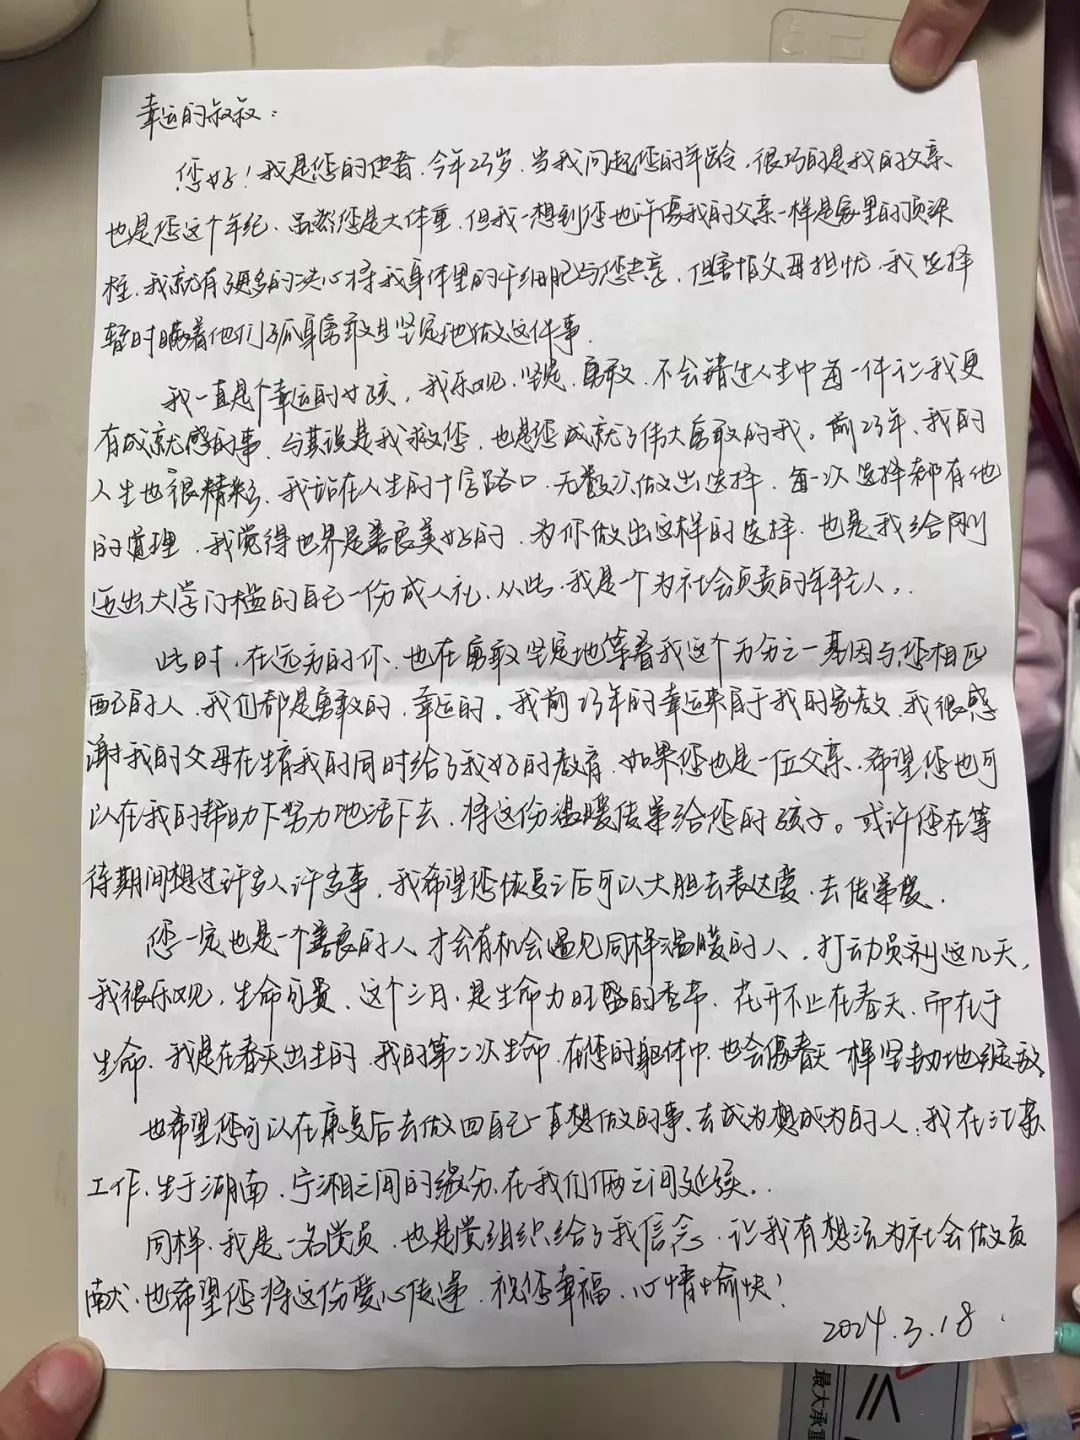 幸运的叔叔：
您好！我是您的患者，今年23岁，当我问起您的年龄，很巧的是我的父亲
也是您这个年纪，虽然您是大体重，但我一想到您也许像我的父亲一样是家里的顶梁
柱，我就有更多的决心将我身体里的干细胞与您共享，但害怕父母担忧，我选择
暂时瞒着他们孤身勇敢且坚定地做这件事。
我一直是个幸运的女孩，我乐观，坚定，勇敢，不会错过人生中每一件让我更
有成就感的事，与其说是我救您，也是您成就了伟大勇敢的我。前23年，我的
人生也很精彩，我站在人生的十字路口，无数次做出选择，每一次选择都有他
的道理，我觉得世界是善良美好的，为你做出这样的选择，也是我给刚
迈出大学门槛的自己一份成人礼，从此，我是一个为社会负责的年轻人。
此时，在远方的你，也在勇敢坚定地等着我这个万分之一基因与您相匹
配的人，我们都是勇敢的，幸运的。我前23年的幸运来自于我的家教，我很感
谢我的父母在生育我的同时给了我好的教育，如果您也是一位父亲，希望您也可
以在我的帮助下努力地活下去，将这份温暖传递给您的孩子。或许您在等
待期间想过许多人许多事，我希望您恢复之后可以大胆去表达爱，去传递爱，
您一定也是一个善良的人才会有机会遇见同样温暖的人，打动员剂这几天，
我很乐观，生命可贵，这个三月，是生命力旺盛的季节，花开不止在春天，而在于
生命，我是在春天出生的，我的第二次生命，在您的躯体中，也会像春天一样坚韧地绽放，
也希望您可以在康复后去做回自己一直想做的事，去成为想成为的人，我在江苏
工作，生于湖南，宁湘之间的缘分，在我们俩之间延续。
同样，我是一名党员，也是党组织给了我信念，让我有想法为社会做贡
献，也希望您将这份爱心传递，祝您幸福，心情愉快！
2024.3.18
最大承重